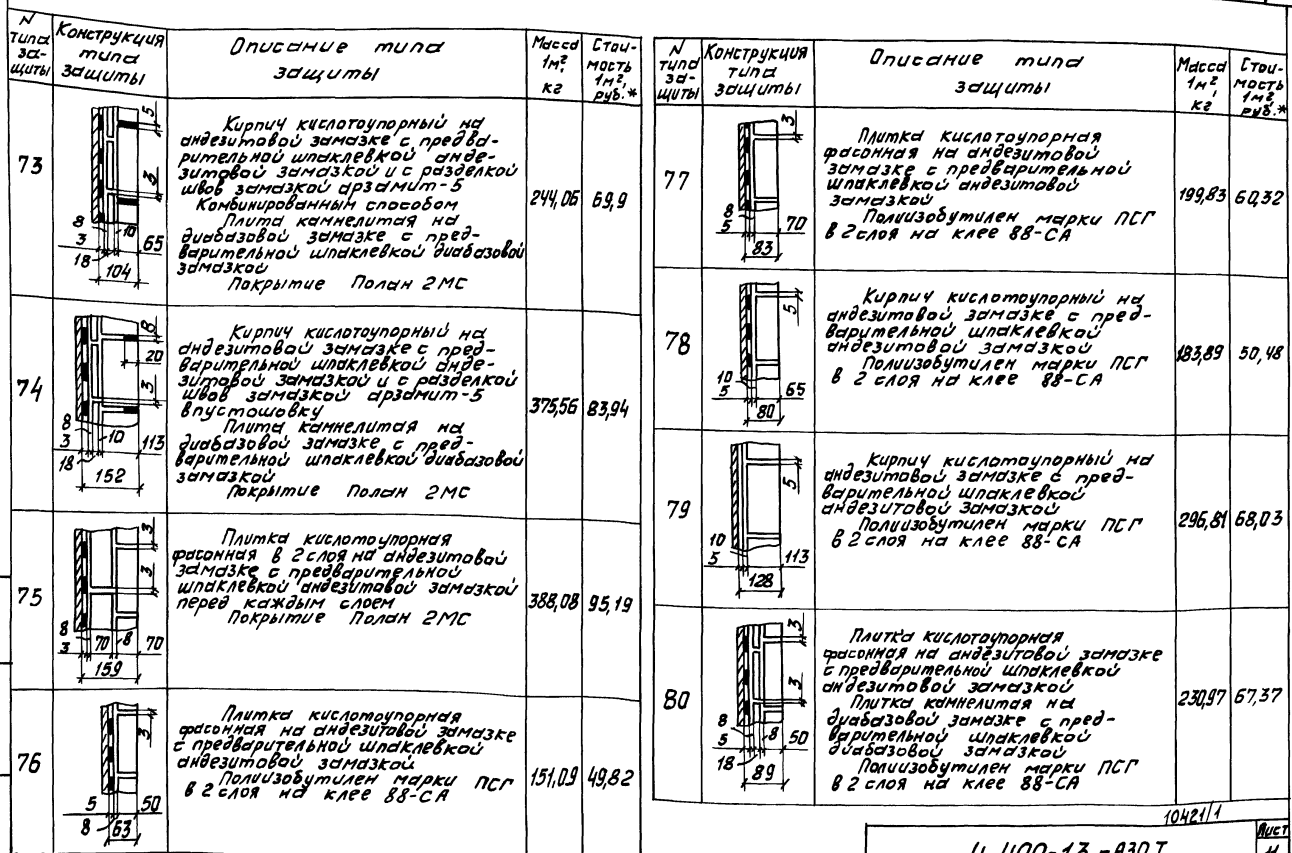 N типа защиты
Конструкция типа защиты
Описание типа защиты
Масса 1м², кг
Стоимость 1м², руб.*
73
5
3
8
10
3
65
18
104
Кирпич кислотоупорный на
андезитовой замазке с предва-
рительной шпаклевкой анде-
зитовой замазкой и с разделкой
швов замазкой арзамит-5
Комбинированным способом
Плита камнелитая на
диабазовой замазке с пред-
варительной шпаклевкой диабазовой
замазкой
Покрытие Полан 2МС
244,06
69,9
74
8
20
3
8
3
10
113
18
152
Кирпич кислотоупорный на
андезитовой замазке с пред-
варительной шпаклевкой анде-
зитовой замазкой и с разделкой
швов замазкой арзамит-5
впустошовку
Плита камнелитая на
диабазовой замазке с пред-
варительной шпаклевкой диабазовой
замазкой
Покрытие Полан 2МС
375,56
83,94
75
3
3
8
3
70
8
70
159
Плитка кислотоупорная
фасонная в 2 слоя на андезитовой
замазке с предварительной
шпаклевкой андезитовой замазкой
перед каждым слоем
Покрытие Полан 2МС
388,08
95,19
76
3
5
50
8
63
Плитка кислотоупорная
фасонная на андезитовой замазке
с предварительной шпаклевкой
андезитовой замазкой
Полиизобутилен марки ПСГ
в 2 слоя на клее 88-СА
151,09
49,82
N типа защиты
Конструкция типа защиты
Описание типа защиты
Масса 1м², кг
Стоимость 1м², руб.*
77
3
8
5
70
83
Плитка кислотоупорная
фасонная на андезитовой
замазке с предварительной
шпаклевкой андезитовой
замазкой
Полиизобутилен марки ПСГ
в 2 слоя на клее 88-СА
199,83
60,32
78
5
10
5
65
80
Кирпич кислотоупорный на
андезитовой замазке с пред-
варительной шпаклевкой
андезитовой замазкой
Полиизобутилен марки ПСГ
в 2 слоя на клее 88-СА
183,89
50,48
79
5
10
5
113
128
Кирпич кислотоупорный на
андезитовой замазке с пред-
варительной шпаклевкой
андезитовой замазкой
Полиизобутилен марки ПСГ
в 2 слоя на клее 88-СА
296,81
68,03
80
3
3
8
5
8
50
18
89
Плитка кислотоупорная
фасонная на андезитовой замазке
с предварительной шпаклевкой
андезитовой замазкой
Плитка камнелитая на
диабазовой замазке с пред-
варительной шпаклевкой
диабазовой замазкой
Полиизобутилен марки ПСГ
в 2 слоя на клее 88-СА
230,97
67,37
10421/1
Лист